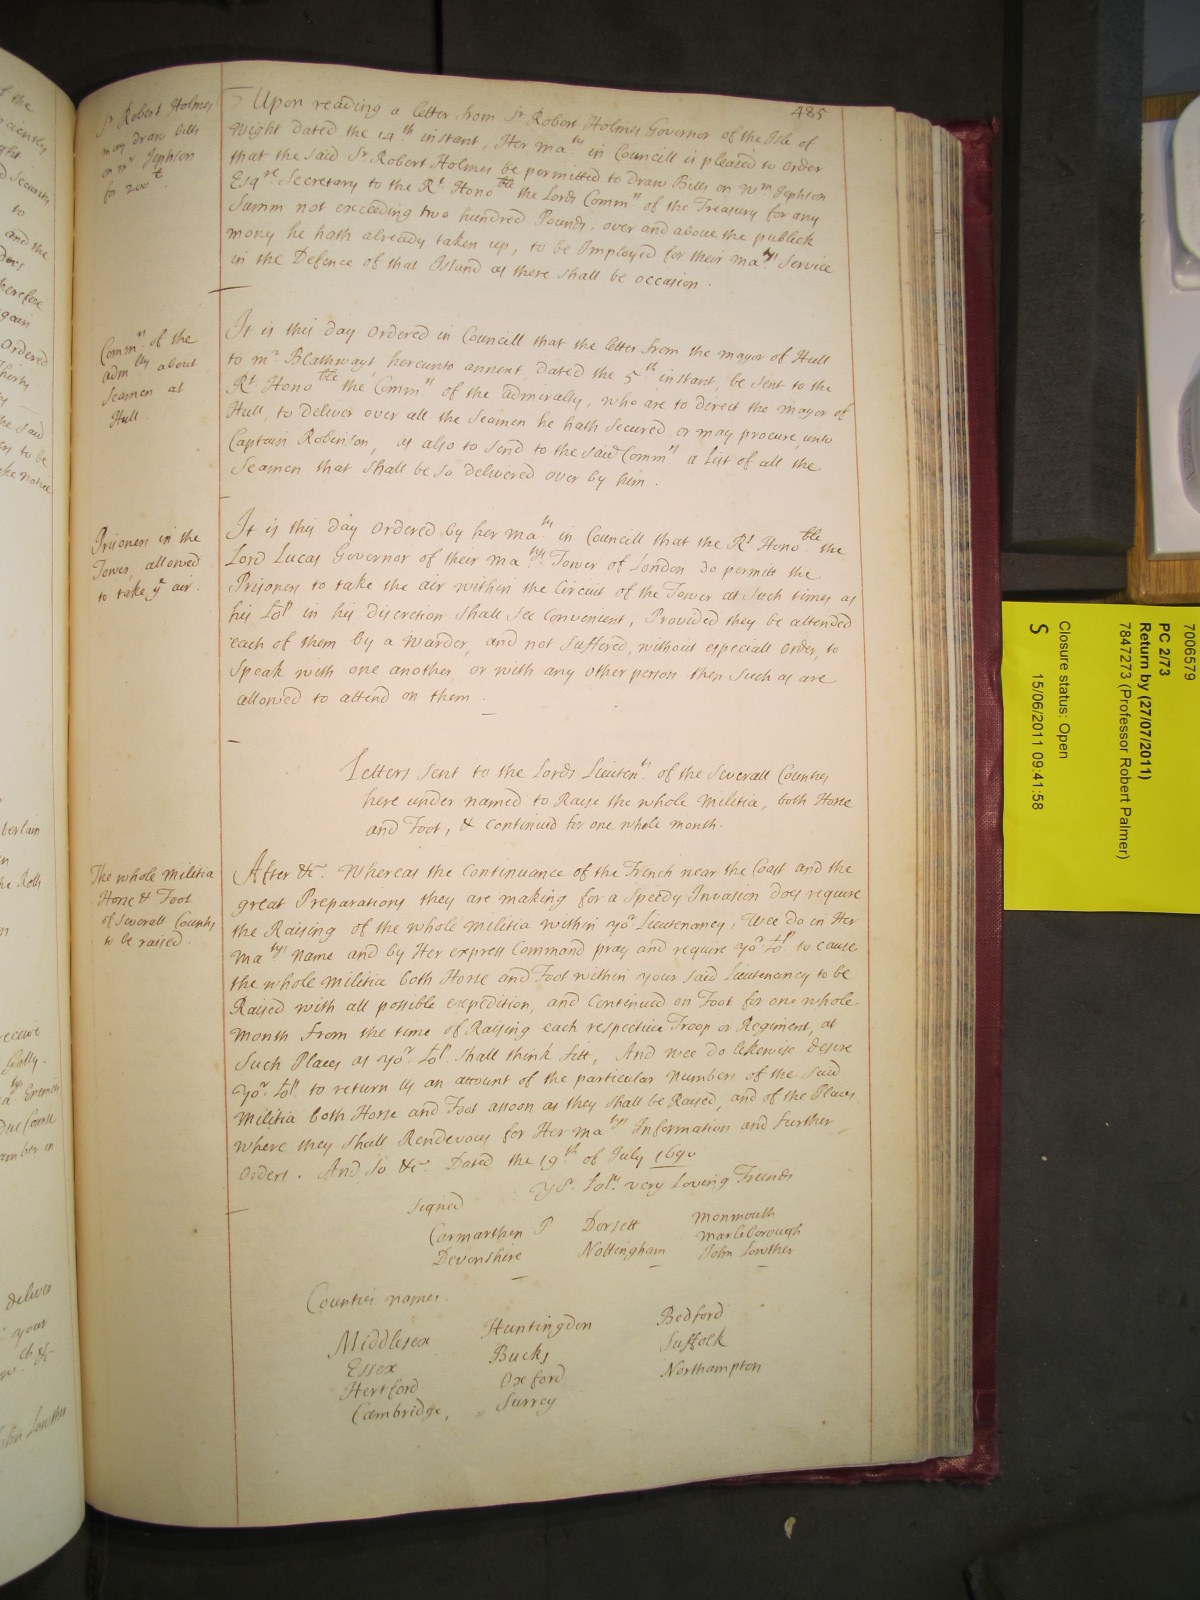 485
Sr Robert Holmes
may draw bills
on mr Jephson
for 200 £
Upon reading a letter from Sr Robert Holmes Governor of the Isle of
Wight dated the 14th instant, Her Maty in Councill is pleased to order
that the said Sr Robert Holmes be permitted to Draw Bills on Wm Jephson
Esqre Secretary to the Rt Honoble the Lords Commrs of the Treasury for any
Summ not exceeding two hundred Pounds, over and above the publick
mony he hath already taken up, to be Imployed for their Matys Service
in the Defence of that Island as there shall be occasion.
Commrs of the
admllty about
Seamen at
Hull
It is this day Ordered in Councill that the letter from the mayor of Hull
to mr Blathwayt, hereunto annext, dated the 5th instant, be sent to the
Rt Honoble the Commrs of the admiralty, who are to direct the mayor of
Hull, to deliver over all the Seamen he hath secured or may procure, unto
Captain Robinson, as also to send to the said Commrs a List of all the
Seamen that shall be so delivered over by him.
Prisoners in the
Tower, allowed
to take ye air.
It is this day Ordered by her Maty in Councill that the Rt Honoble the
Lord Lucas Governor of their Matys Tower of London do permitt the
Prisoners to take the air within the Circuit of the Tower at Such times as
his Lop in his discretion shall see Convenient, Provided they be attended
each of them by a Warder, and not suffered, without especiall order, to
speak with one another, or with any other person then such as are
allowed to attend on them.
Letters sent to the Lords Lieutents of the Severall Counties
here under named to Raise the whole Militia, both Horse
and Foot, & continued for one whole month.
The whole militia
Horse & Foot
of severall Countys
to be raised.
After &c. Whereas the Continuance of the French near the Coast and the
great Preparations they are making for a Speedy Invasion does require
the Raising of the whole Militia within yor Lieutenancy, Wee do in Her
Matys Name and by Her express Command pray and require yor Lop to cause
the whole Militia both Horse and Foot within your said Lieutenancy to be
Raised with all possible expedition, and Continued on Foot for one whole
month from the time of Raising each respective Troop or Regiment, at
Such Places as yor Lop shall think fitt, And wee do likewise desire
yor Lop to return us an account of the particular Numbers of the said
Militia both Horse and Foot assoon as they shall be Raised, and of the Places
where they shall Rendevous for Her Matys Information and further
Orders. And so &c. Dated the 19th of July 1690
Yor Lops very Loving Freinds
Signed
Carmarthen P Dorsett Monmouth
Devonshire Nottingham Marleborough
John Lowther
Counties names.
Middlesex Huntingdon Bedford
Essex Bucks Suffolk
Hertford Oxford Northampton
Cambridge, Surrey
7006579
PC 2/73
Return by (27/07/2011)
7847273 (Professor Robert Palmer)
Closure status: Open
S 15/06/2011 09:41:58